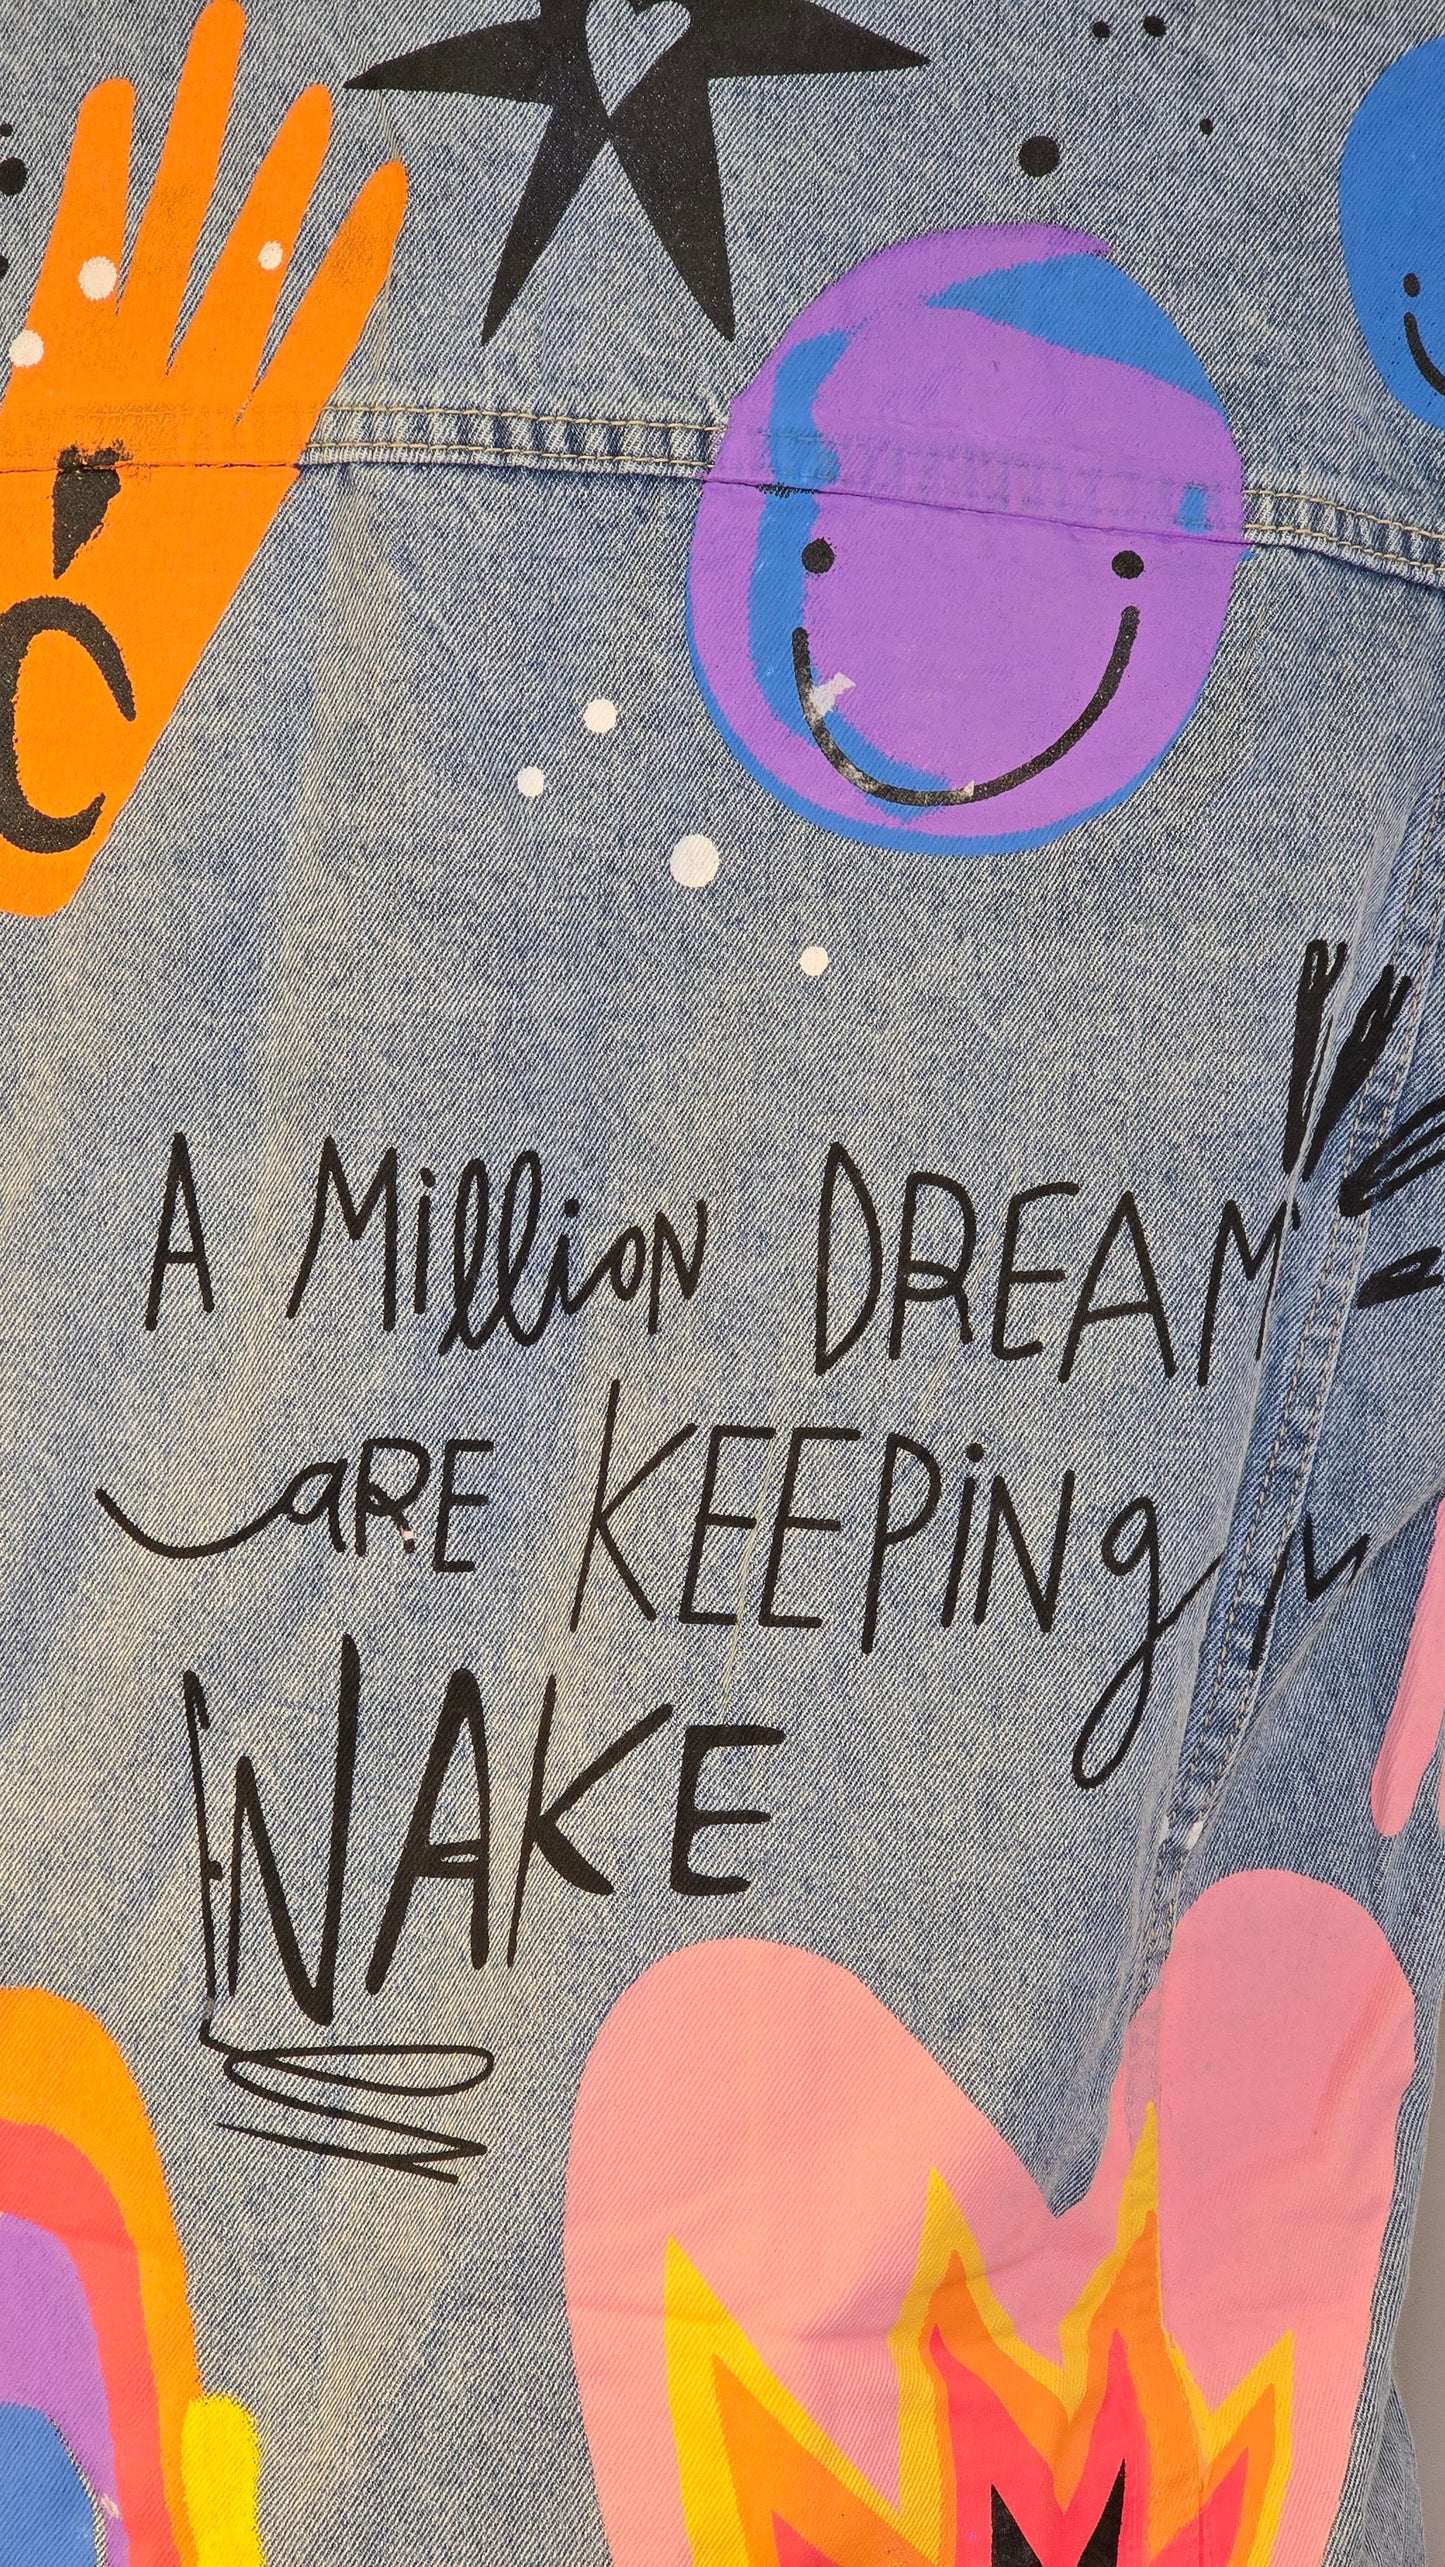 A Million DREAM
are KEEPING
WAKE